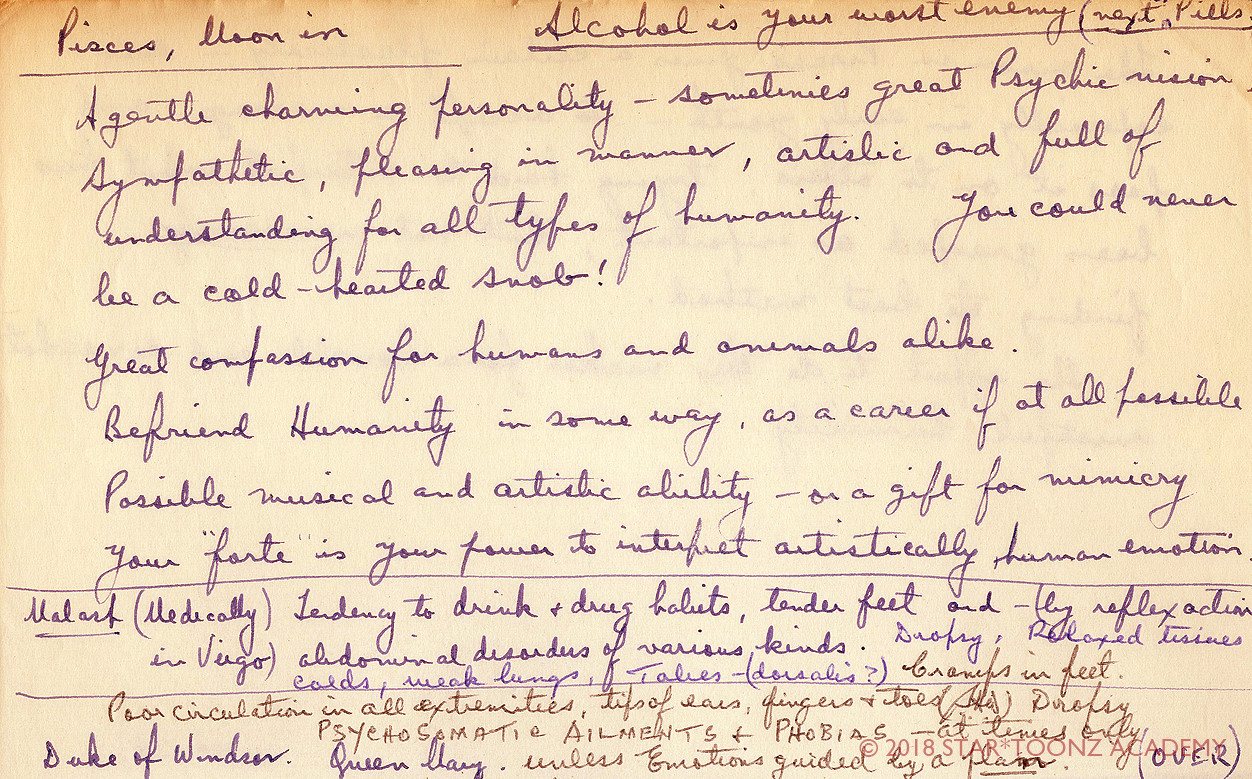 Pisces, Moon in Alcohol is your worst enemy (next, Pills.
A gentle charming personality – sometimes great Psychic vision.
Sympathetic, pleasing in manner, artistic and full of
understanding for all types of humanity. You could never
be a cold-hearted snob!
Great compassion for humans and animals alike.
Befriend Humanity in some way, as a career if at all possible
Possible musical and artistic ability – or a gift for mimicry
Your "forte" is your power to interpret artistically human emotion.
Malasp (Medically) Tendency to drink + drug habits, tender feet and – (by reflex action
in Virgo) abdominal disorders of various kinds. Dropsy, Relaxed tissues
colds, weak lungs, Tabes – (dorsalis?) Cramps in feet.
Poor circulation in all extremities, tips of ears, fingers + toes Dropsy
PSYCHOSOMATIC AILMENTS + PHOBIAS – at times only
Duke of Windsor. Queen Mary. unless Emotions guided by a plan. (OVER)
© 2018 STAR*TOONZ ACADEMY